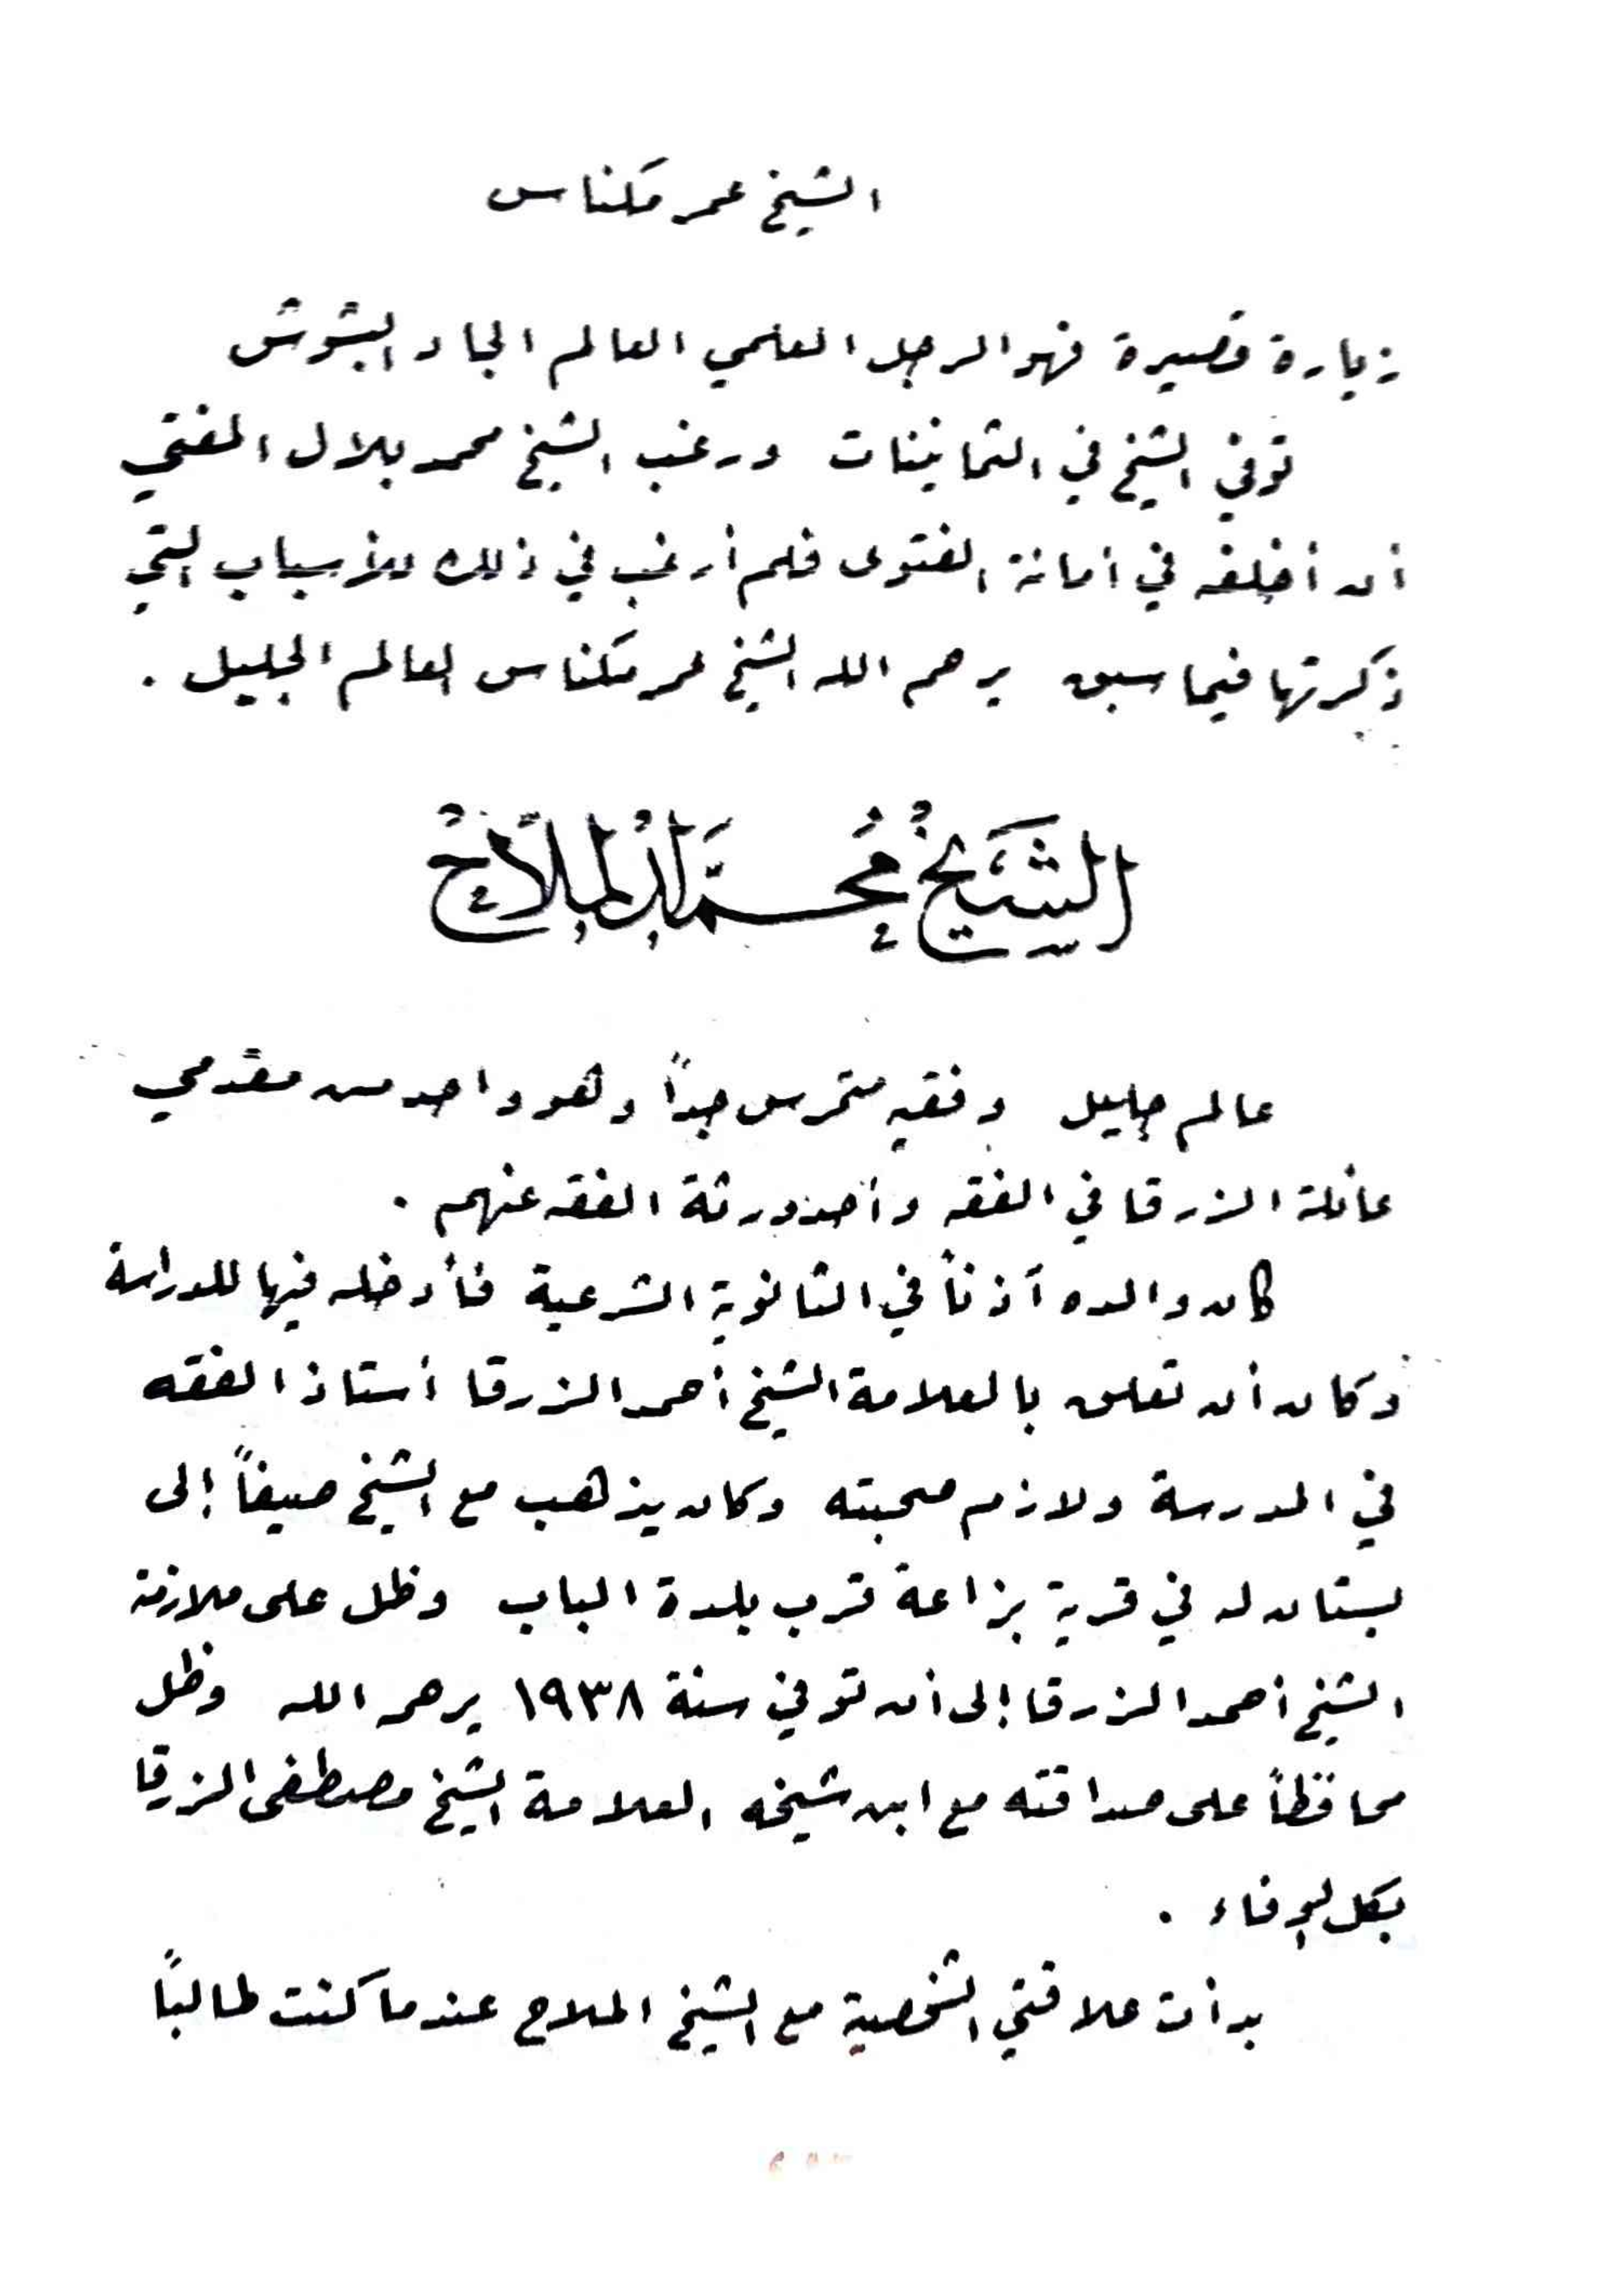 الشيخ عمر مكناس
زيارة قصيرة فهو الرجل العلمي العالم الجاد البشوش
توفي الشيخ في الثمانينات ورغب الشيخ محمد بلال المفتي
أن أخلفه في أمانة الفتوى فلم أرغب في ذلك للأسباب التي
ذكرتها فيما سبق يرحم الله الشيخ عمر مكناس العالم الجليل .
الشَّيْخُ مُحَمَّدُ المَلَّاحُ
عالم جليل وفقيه متمرس جداً وهو واحد من مقدَّمي
عائلة الزرقا في الفقه وأحد ورثة الفقه عنهم .
كان والده آذناً في الثانوية الشرعية فأدخله فيها للدراسة
وكان أن تعلق بالعلامة الشيخ أحمد الزرقا أستاذ الفقه
في المدرسة ولازم صحبته وكان يذهب مع الشيخ صيفاً إلى
بستان له في قرية بزاعة قرب بلدة الباب وظل على ملازمة
الشيخ أحمد الزرقا إلى أن توفي سنة ١٩٣٨ يرحمه الله وظل
محافظاً على صداقته مع ابن شيخه العلامة الشيخ مصطفى الزرقا
بكل الوفاء .
بدأت علاقتي الشخصية مع الشيخ الملاح عندما كنت طالباً